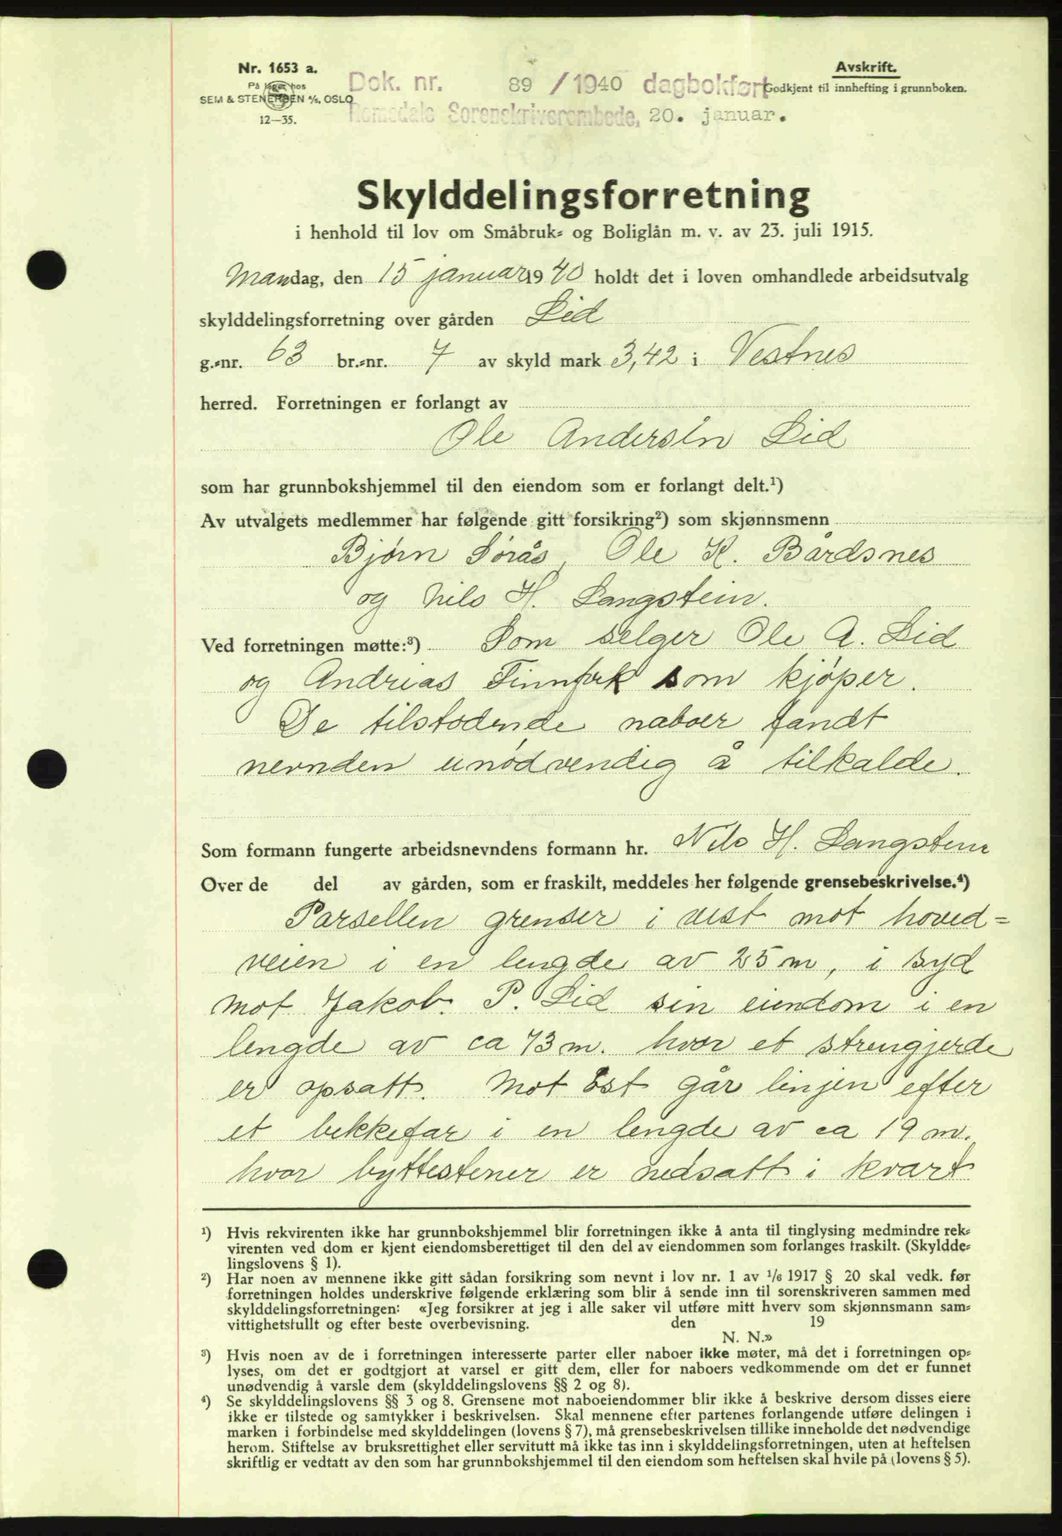 Nr. 1653 a.
På lager hos
SEM & STENERSEN A/S, OSLO
12—35.
Dok. nr. 89 / 1940 dagbokført
Romsdals Sorenskriverembede, 20. januar.
Avskrift.
Godkjent til innhefting i grunnboken.
Skylddelingsforretning
i henhold til lov om Småbruk- og Boliglån m. v. av 23. juli 1915.
Mandag, den 15 januar 1940 holdt det i loven omhandlede arbeidsutvalg
skylddelingsforretning over gården Lid
g.-nr. 63 br.-nr. 7 av skyld mark 3,42 i Vestnes
herred. Forretningen er forlangt av
Ole Andersen Lid
som har grunnbokshjemmel til den eiendom som er forlangt delt.¹)
Av utvalgets medlemmer har følgende gitt forsikring²) som skjønnsmenn
Bjørn Sørås, Ole K. Bårdsnes
og Nils H. Langstein.
Ved forretningen møtte:³) Som selger Ole A. Lid
og Andrias som kjøper.
De tilstødende naboer fandt
nevnden unødvendig å tilkalde.
Som formann fungerte arbeidsnevndens formann hr. Nils H. Langstein
Over de del av gården, som er fraskilt, meddeles her følgende grensebeskrivelse.⁴)
Parsellen grenser i vest mot hoved=
veien i en lengde av 25 m, i syd
mot Jakob P. Lid sin eiendom i en
lengde av ca 73 m. hvor et strengjerde
er opsatt. Mot øst går linjen efter
et bekkefar i en lengde av ca 19 m.
hvor byttestener er nedsatt i kvart
¹) Hvis rekvirenten ikke har grunnbokshjemmel blir forretningen ikke å anta til tinglysing medmindre rek-
virenten ved dom er kjent eiendomsberettiget til den del av eiendommen som forlanges fraskilt. (Skyldde-
lingslovens § 1).
²) Har noen av mennene ikke gitt sådan forsikring som nevnt i lov nr. 1 av 1/6 1917 § 20 skal vedk. før
forretningen holdes underskrive følgende erklæring som blir å sende inn til sorenskriveren sammen med
skylddelingsforretningen: «Jeg forsikrer at jeg i alle saker vil utføre mitt hverv som skjønnsmann sam-
vittighetsfullt og efter beste overbevisning. den 19
N. N.»
³) Hvis noen av de i forretningen interesserte parter eller naboer ikke møter, må det i forretningen op-
lyses, om det er godtgjort at varsel er gitt dem, eller for naboers vedkommende om det er funnet
unødvendig å varsle dem (skylddelingslovens §§ 2 og 8).
⁴) Se skylddelingslovens §§ 3 og 8. Grensene mot naboeiendommer blir ikke å beskrive dersom disses eiere
ikke er tilstede og samtykker i beskrivelsen. Skal mennene efter partenes forlangende utføre delingen i
marken i forbindelse med skylddelingen (lovens § 7), må grensebeskrivelsen tillike inneholde det nødvendige
herom. Stiftelse av bruksrettighet eller servitutt må ikke tas inn i skylddelingsforretningen, uten at heftelsen
skriftlig er vedtatt av den som har grunnbokshjemmel til den eiendom som heftelsen skal hvile på (lovens § 5).